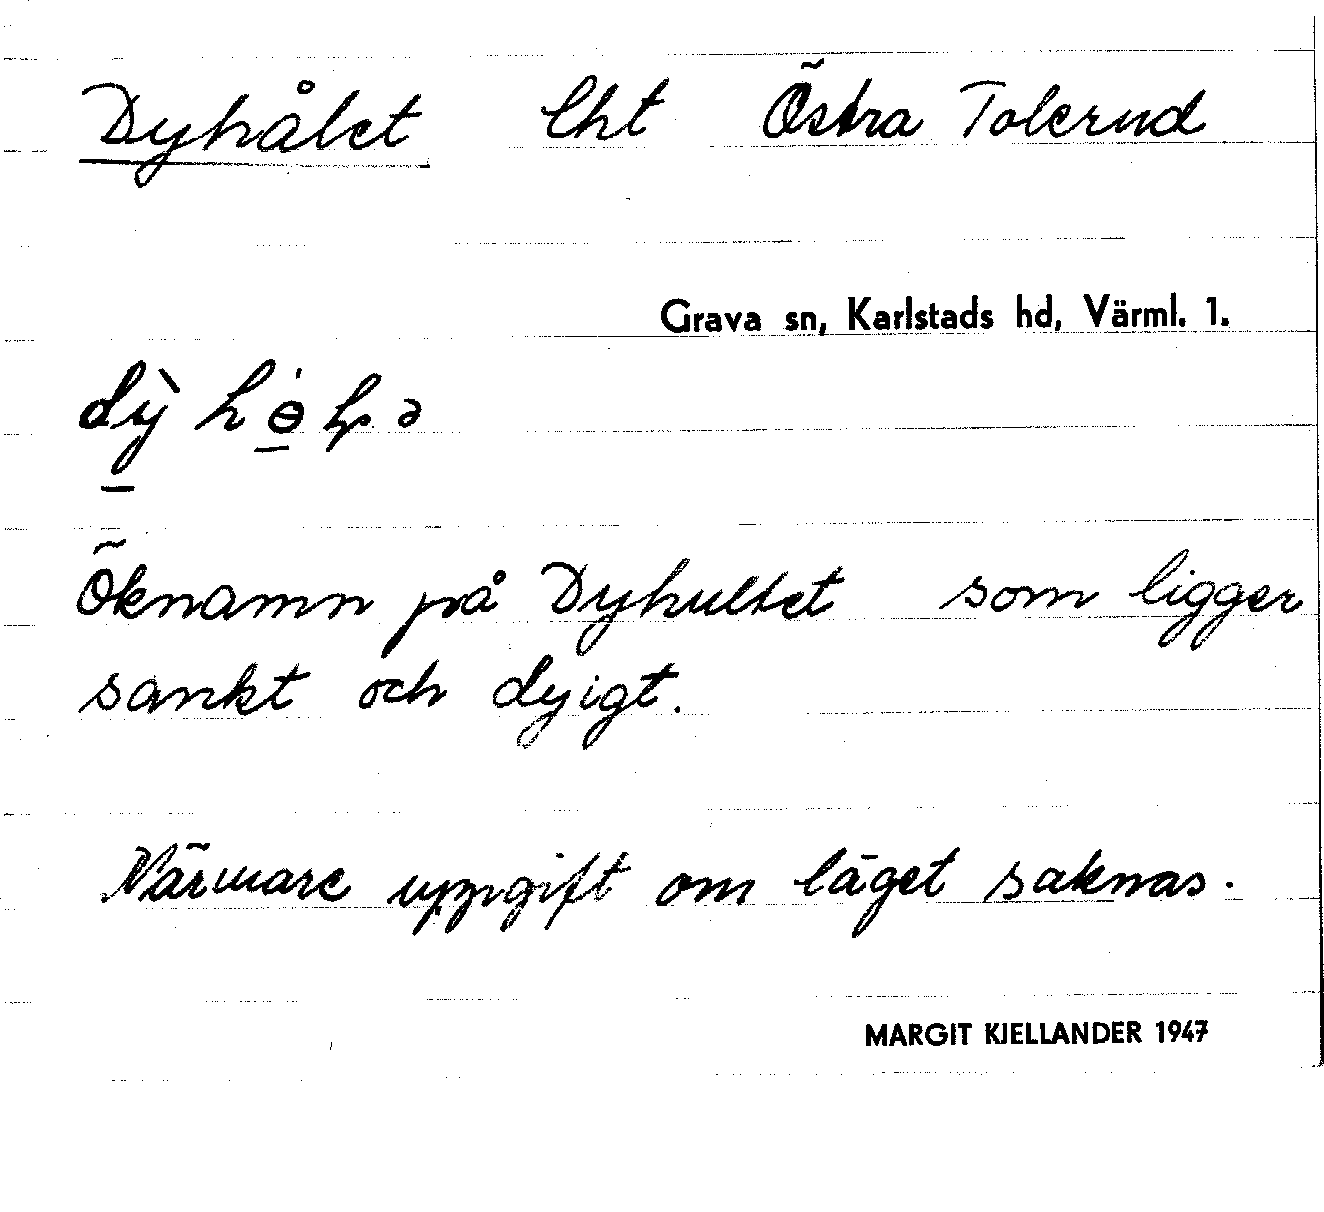 Dyhålet lht Östra Tolerud
Grava sn, Karlstads hd, Värml. 1.
Öknamn på Dyhultet som ligger
sankt och dyigt.
Närmare uppgift om läget saknas.
MARGIT KJELLANDER 1947